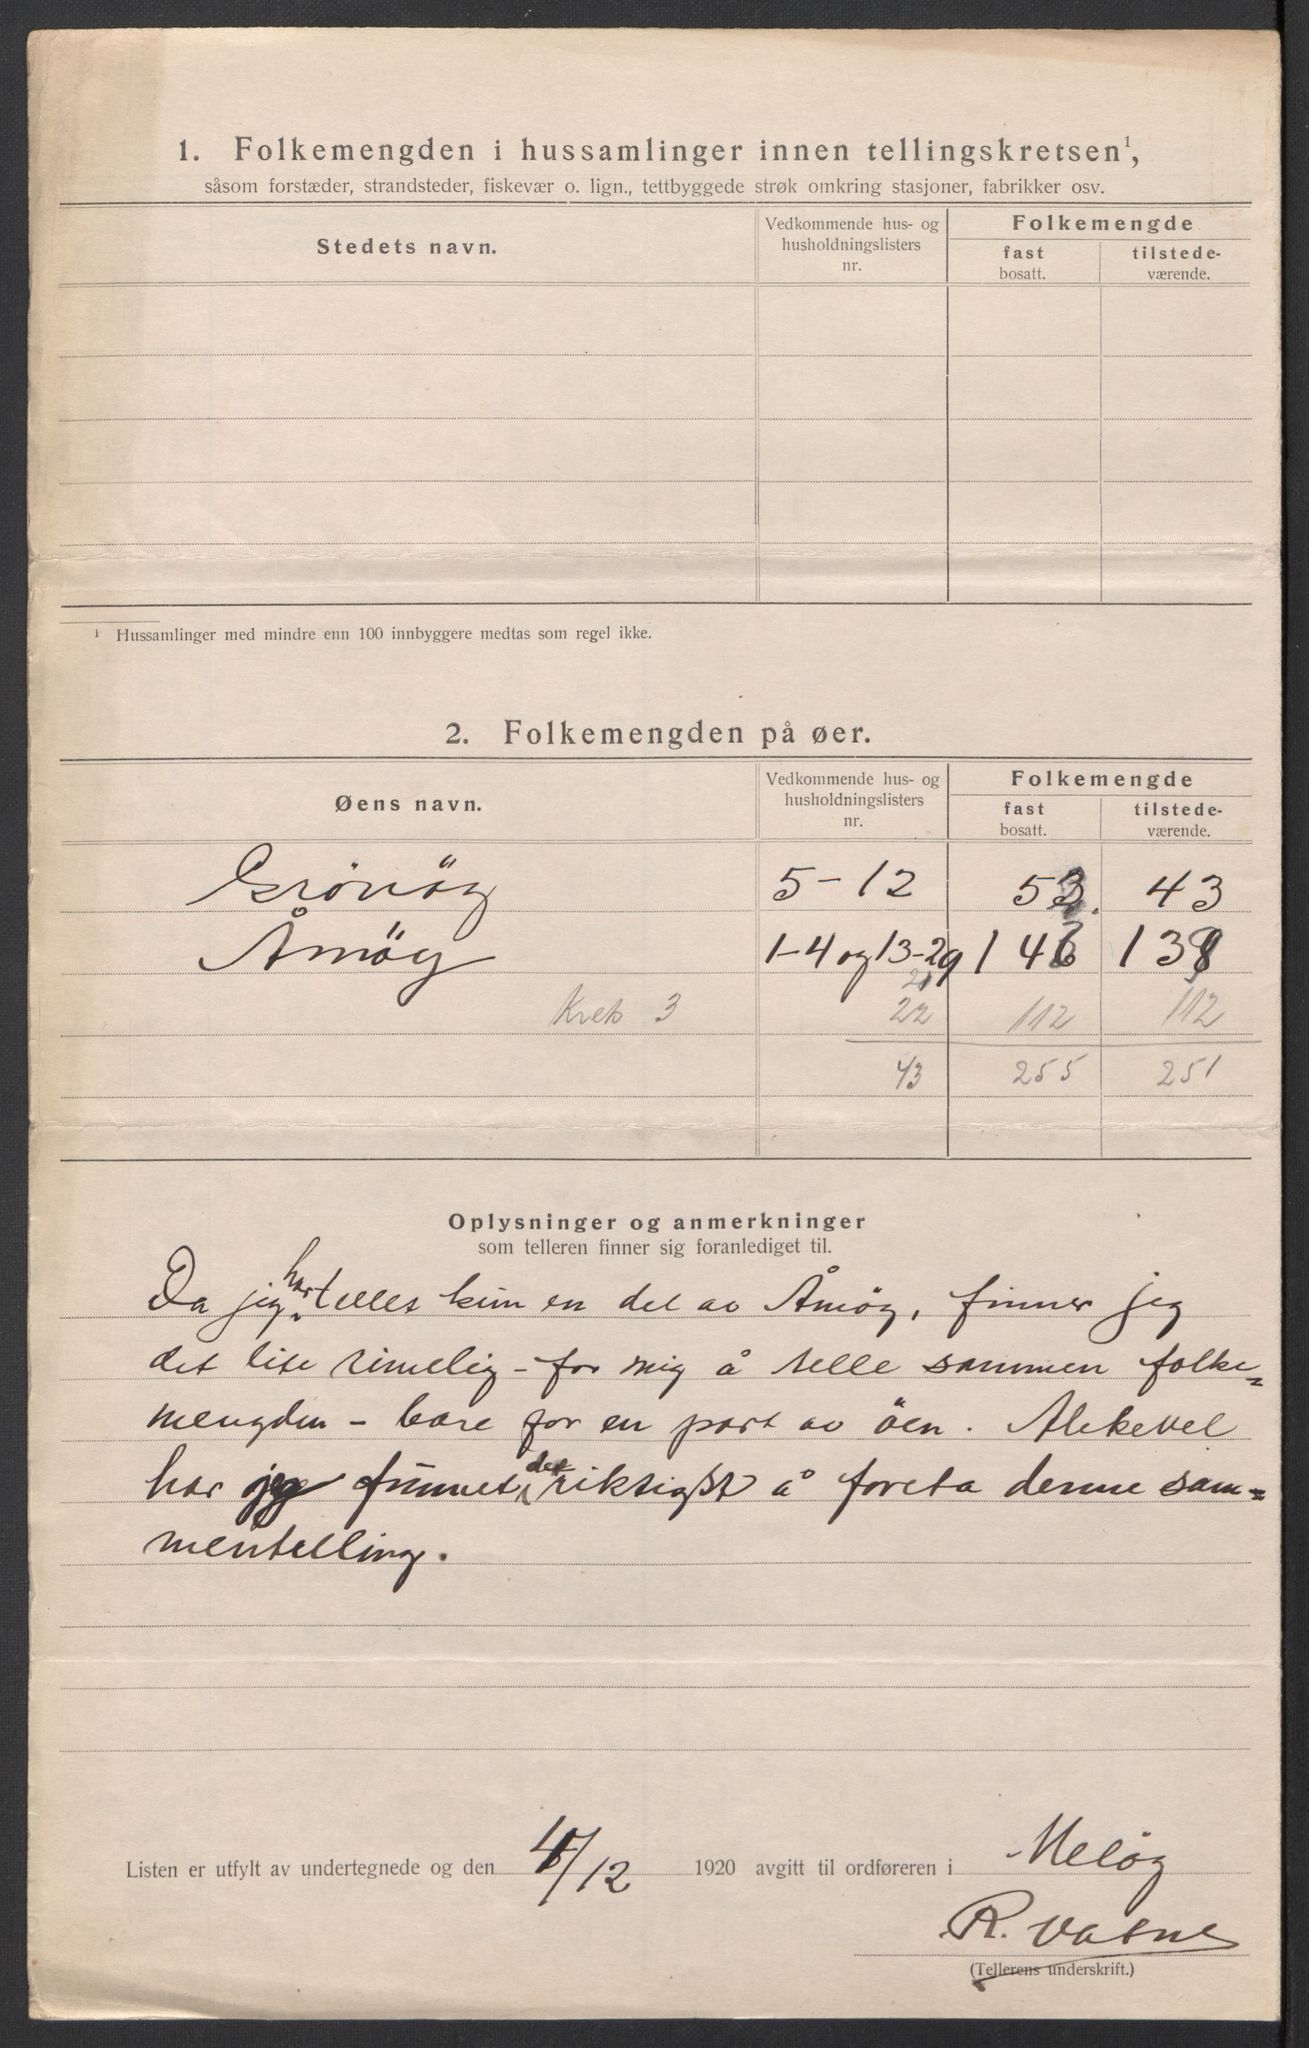 1. Folkemengden i hussamlinger innen tellingskretsen¹,
såsom forstæder, strandsteder, fiskevær o. lign., tettbyggede strøk omkring stasjoner, fabrikker osv.
Stedets navn.
Vedkommende hus- og
husholdningslisters
nr.
Folkemengde
fast
bosatt.
tilstede-
værende.
¹ Hussamlinger med mindre enn 100 innbyggere medtas som regel ikke.
2. Folkemengden på øer.
Øens navn.
Vedkommende hus- og
husholdningslisters
nr.
Folkemengde
fast
bosatt.
tilstede-
værende.
Grönöy 5-12 53. 43
Åmöy 1-4 og 13-29
21
Krets 3 22 112 112
43 255 251
Oplysninger og anmerkninger
som telleren finner sig foranlediget til.
Da jeg har tellet kun en del av Åmöy, finner jeg
det lite rimelig - for mig å telle sammen folke=
mengden - bare for en part av öen. Alikevel
har jeg funnet det riktigst å foreta denne sam=
mentelling.
Listen er utfylt av undertegnede og den /12 1920 avgitt til ordføreren i Melöy
R. Vatne
(Tellerens underskrift.)